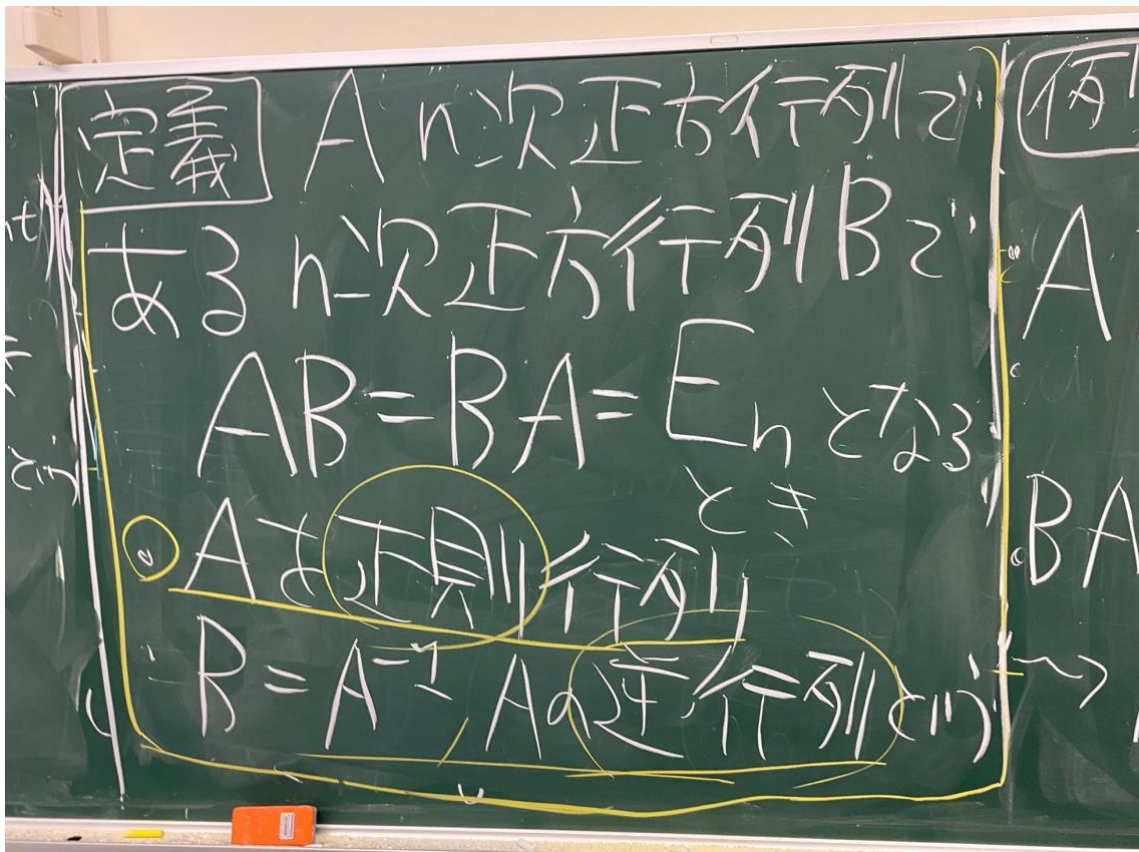 定義 A n次正方行列で
ある n次正方行列Bで
AB=BA=En となる
とき
。Aを正則行列
・B=A⁻¹と Aの逆行列という
例
A
BA